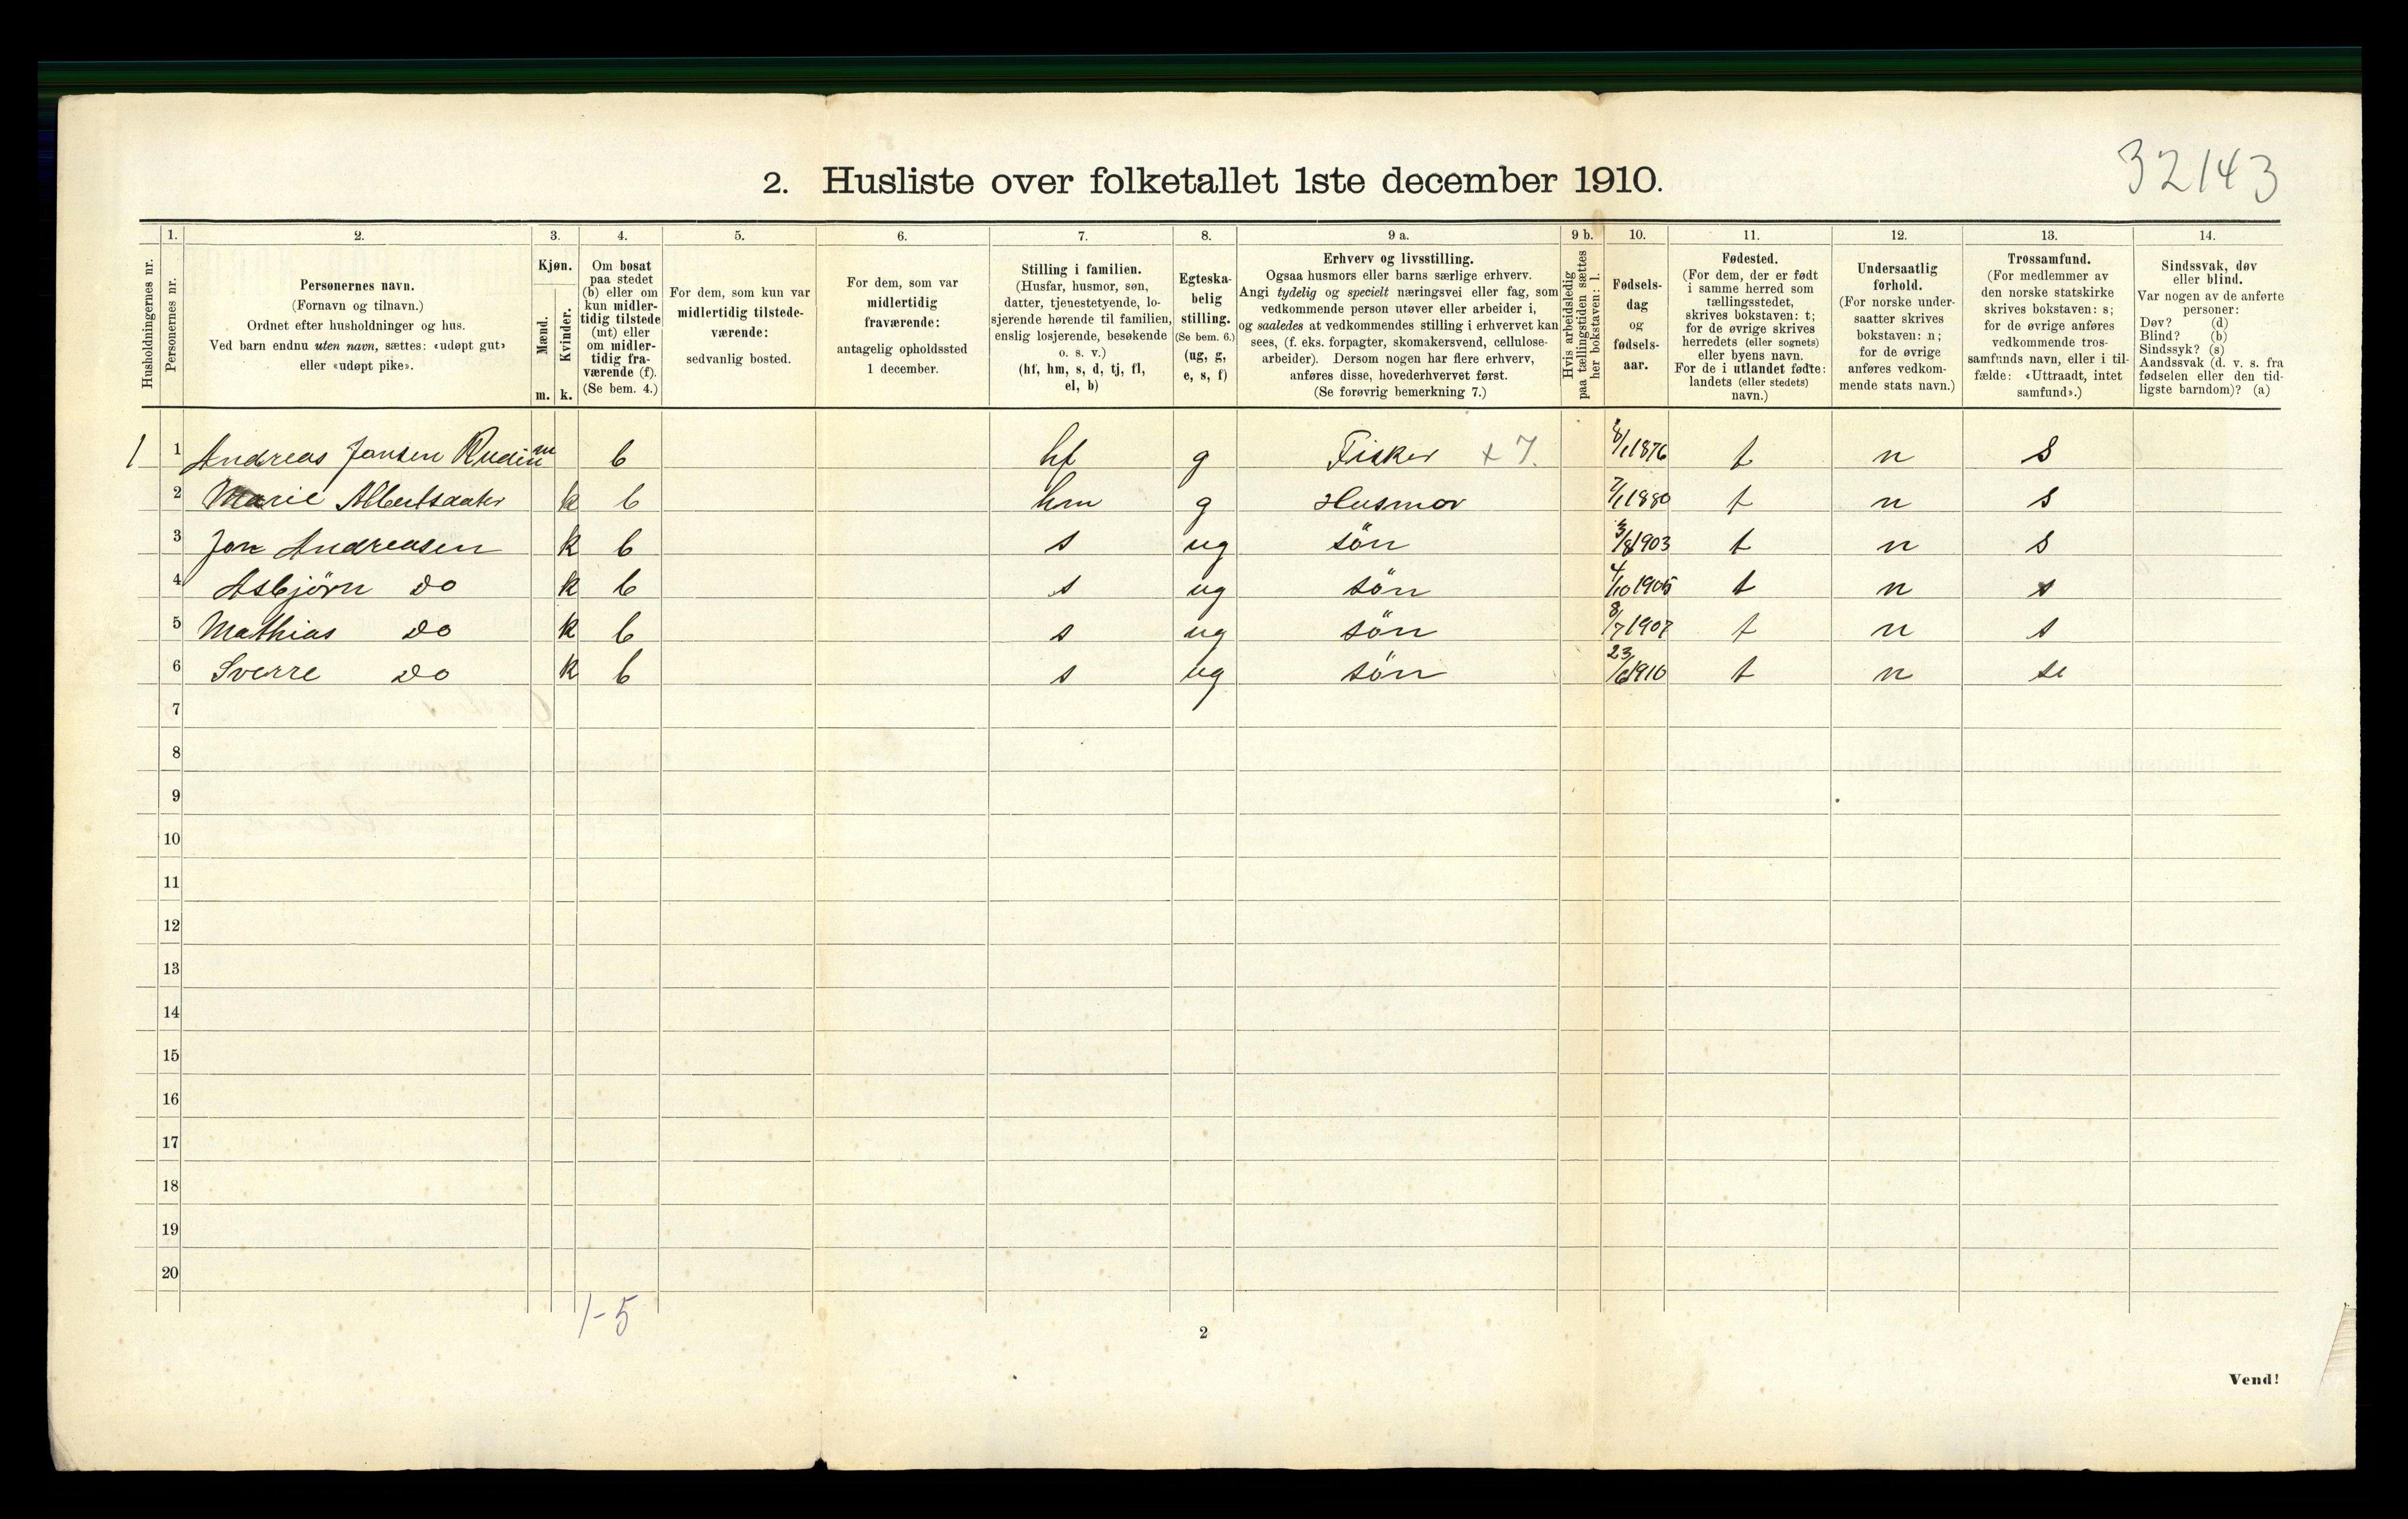 32143
2. Husliste over folketallet 1ste december 1910.
Husholdningernes nr.
1. Personernes nr.
2. Personernes navn.
(Fornavn og tilnavn.)
Ordnet efter husholdninger og hus.
Ved barn endnu uten navn, sættes: «udøpt gut»
eller «udøpt pike».
3. Kjøn.
Mænd. m.
Kvinder. k.
4. Om bosat
paa stedet
(b) eller om
kun midler-
tidig tilstede
(mt) eller
om midler-
tidig fra-
værende (f).
(Se bem. 4.)
5. For dem, som kun var
midlertidig tilstede-
værende:
sedvanlig bosted.
6. For dem, som var
midlertidig
fraværende:
antagelig opholdssted
1 december.
7. Stilling i familien.
(Husfar, husmor, søn,
datter, tjenestetyende, lo-
sjerende hørende til familien,
enslig losjerende, besøkende
o. s. v.)
(hf, hm, s, d, tj, fl,
el, b)
8. Egteska-
belig
stilling.
(Se bem. 6.)
(ug, g,
e, s, f)
9 a. Erhverv og livsstilling.
Ogsaa husmors eller barns særlige erhverv.
Angi tydelig og specielt næringsvei eller fag, som
vedkommende person utøver eller arbeider i,
og saaledes at vedkommendes stilling i erhvervet kan
sees, (f. eks. forpagter, skomakersvend, cellulose-
arbeider). Dersom nogen har flere erhverv,
anføres disse, hovederhvervet først.
(Se forøvrig bemerkning 7.)
9 b. Hvis arbeidsledig
paa tællingstiden sættes
her bokstaven: l.
10. Fødsels-
dag
og
fødsels-
aar.
11. Fødested.
(For dem, der er født
i samme herred som
tællingsstedet,
skrives bokstaven: t;
for de øvrige skrives
herredets (eller sognets)
eller byens navn.
For de i utlandet fødte:
landets (eller stedets)
navn.)
12. Undersaatlig
forhold.
(For norske under-
saatter skrives
bokstaven: n;
for de øvrige
anføres vedkom-
mende stats navn.)
13. Trossamfund.
(For medlemmer av
den norske statskirke
skrives bokstaven: s;
for de øvrige anføres
vedkommende tros-
samfunds navn, eller i til-
fælde: «Uttraadt, intet
samfund».)
14. Sindssvak, døv
eller blind.
Var nogen av de anførte
personer:
Døv? (d)
Blind? (b)
Sindssyk? (s)
Aandssvak (d. v. s. fra
fødselen eller den tid-
ligste barndom)? (a)
1 1 Andreas Jansen m b hf g Fisker + 7. 8/1 1876 t n s
2 Marie Albertsdatter k b hm g Husmor 7/1 1880 t n s
3 Jon Andreasen k b s ug sön 3/8 1903 t n s
4 Asbjörn Do k b s ug sön 4/10 1905 t n s
5 Mathias Do k b s ug sön 8/7 1907 t n s
6 Sverre Do k b s ug sön 23/6 1910 t n s
7
8
9
10
11
12
13
14
15
16
17
18
19
20
1-5
2
Vend!